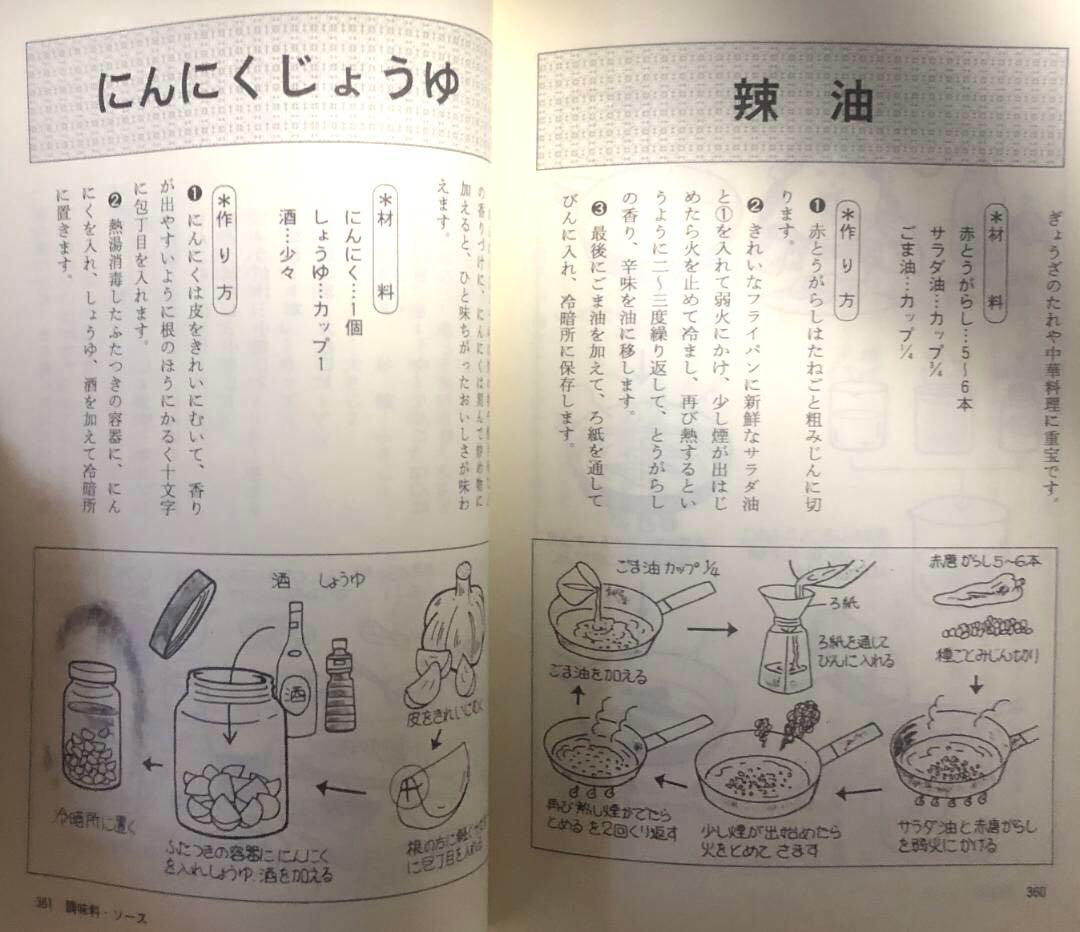 辣油
ぎょうざのたれや中華料理に重宝です。
*材料
赤とうがらし…5〜6本
サラダ油…カップ¾
ごま油…カップ¼
*作り方
❶ 赤とうがらしはたねごと粗みじんに切
ります。
❷ きれいなフライパンに新鮮なサラダ油
と①を入れて弱火にかけ、少し煙が出はじ
めたら火を止めて冷まし、再び熱するとい
うように二〜三度繰り返して、とうがらし
の香り、辛味を油に移します。
❸ 最後にごま油を加えて、ろ紙を通して
びんに入れ、冷暗所に保存します。
赤唐がらし5〜6本
種ごとみじん切り
サラダ油と赤唐がらし
を弱火にかける
少し煙が出始めたら
火をとめてさます
再び熱し煙がでたら
とめるを2回くり返す
ごま油カップ¼
ごま油を加える
ろ紙
ろ紙を通して
びんに入れる
360
にんにくじょうゆ
の香りづけに、にんにくは刻んで炒め物に
加えると、ひと味ちがったおいしさが味わ
えます。
*材料
にんにく…1個
しょうゆ…カップ1
酒…少々
*作り方
❶ にんにくは皮をきれいにむいて、香り
が出やすいように根のほうにかるく十文字
に包丁目を入れます。
❷ 熱湯消毒したふたつきの容器に、にん
にくを入れ、しょうゆ、酒を加えて冷暗所
に置きます。
皮をきれいにむく
根の方に軽く
に包丁目を入れる
酒 しょうゆ
酒
ふたつきの容器ににんにく
を入れしょうゆ、酒を加える
冷暗所に置く
361 調味料・ソース